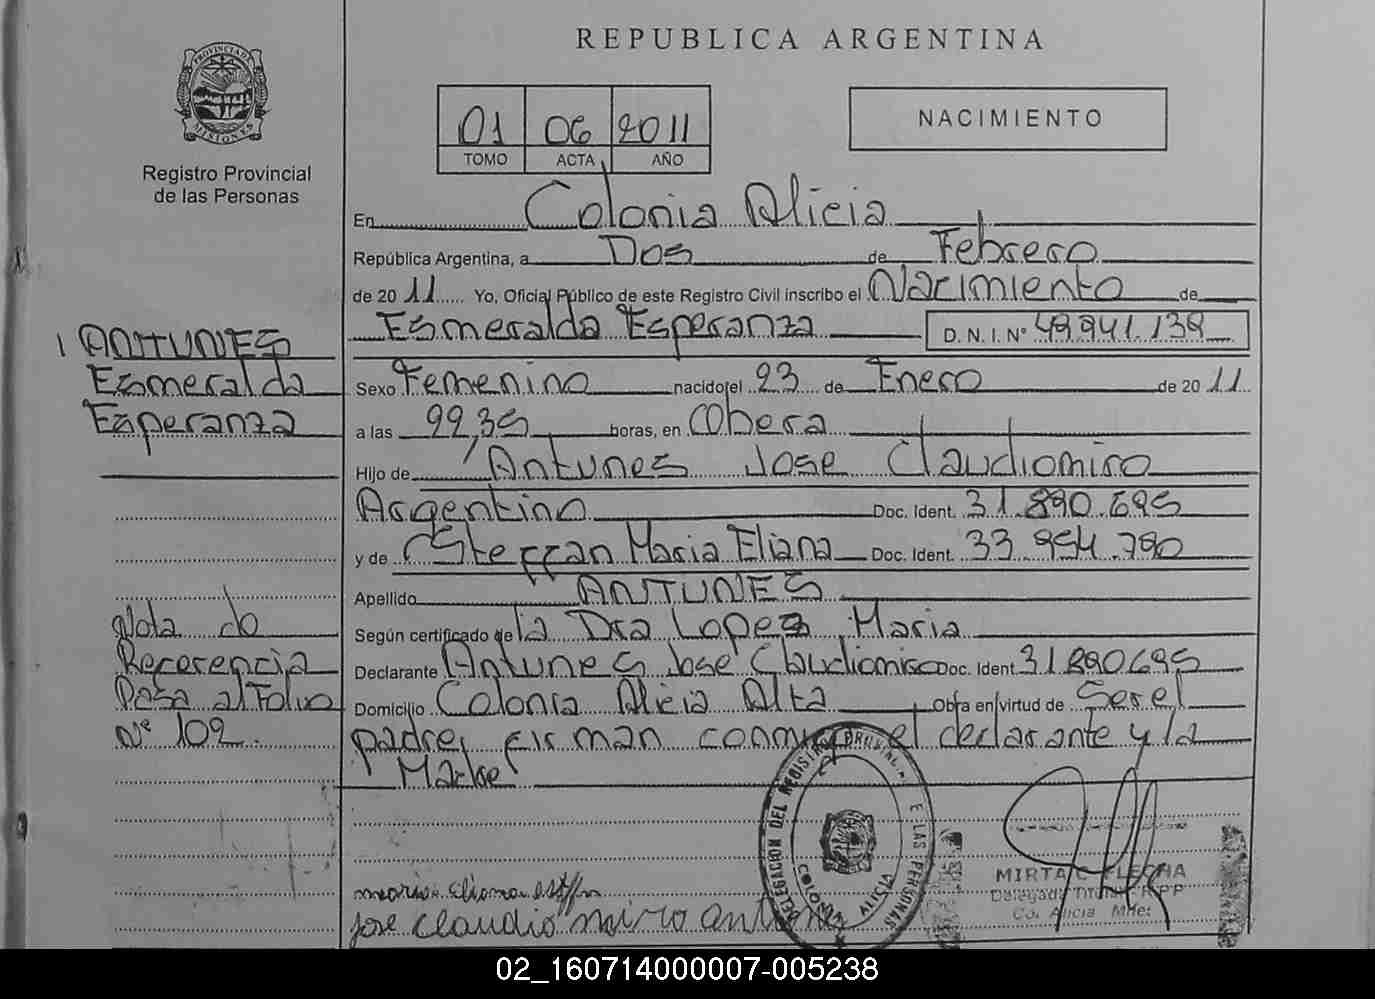 REPUBLICA ARGENTINA
PROVINCIA DE MISIONES
Registro Provincial
de las Personas
01 06 2011
TOMO ACTA AÑO
NACIMIENTO
En Colonia Alicia
República Argentina, a Dos de Febrero
de 20 11 Yo, Oficial Público de este Registro Civil inscribo el Nacimiento de
Esmeralda Esperanza D. N. I. N° 49.941.138
1 ANTUNES
Esmeralda
Esperanza
Sexo Femenino nacido el 23 de Enero de 20 11
a las 22,35 horas, en Obera
Hijo de Antunes Jose Claudiomiro
Argentino Doc. Ident. 31.890.695
y de Steffan Maria Eliana Doc. Ident. 33 954.780
Apellido ANTUNES
Según certificado de la Dra Lopez Maria
Declarante Antunes Jose Claudiomiro Doc. Ident. 31890695
Domicilio Colonia Alicia Alta Obra en virtud de Ser el
padre, firman conmigo el declarante y la
Madre
Nota de
Referencia
Pasa al Folio
N° 102.
DELEGACION DEL REGISTRO PROVINCIAL DE LAS PERSONAS
COLONIA ALICIA
maria eliana
jose claudio miro antunes
MIRTA C. FLECHA
Delegada Titular R.P.P
Co. Alicia Mnes.
02_160714000007-005238